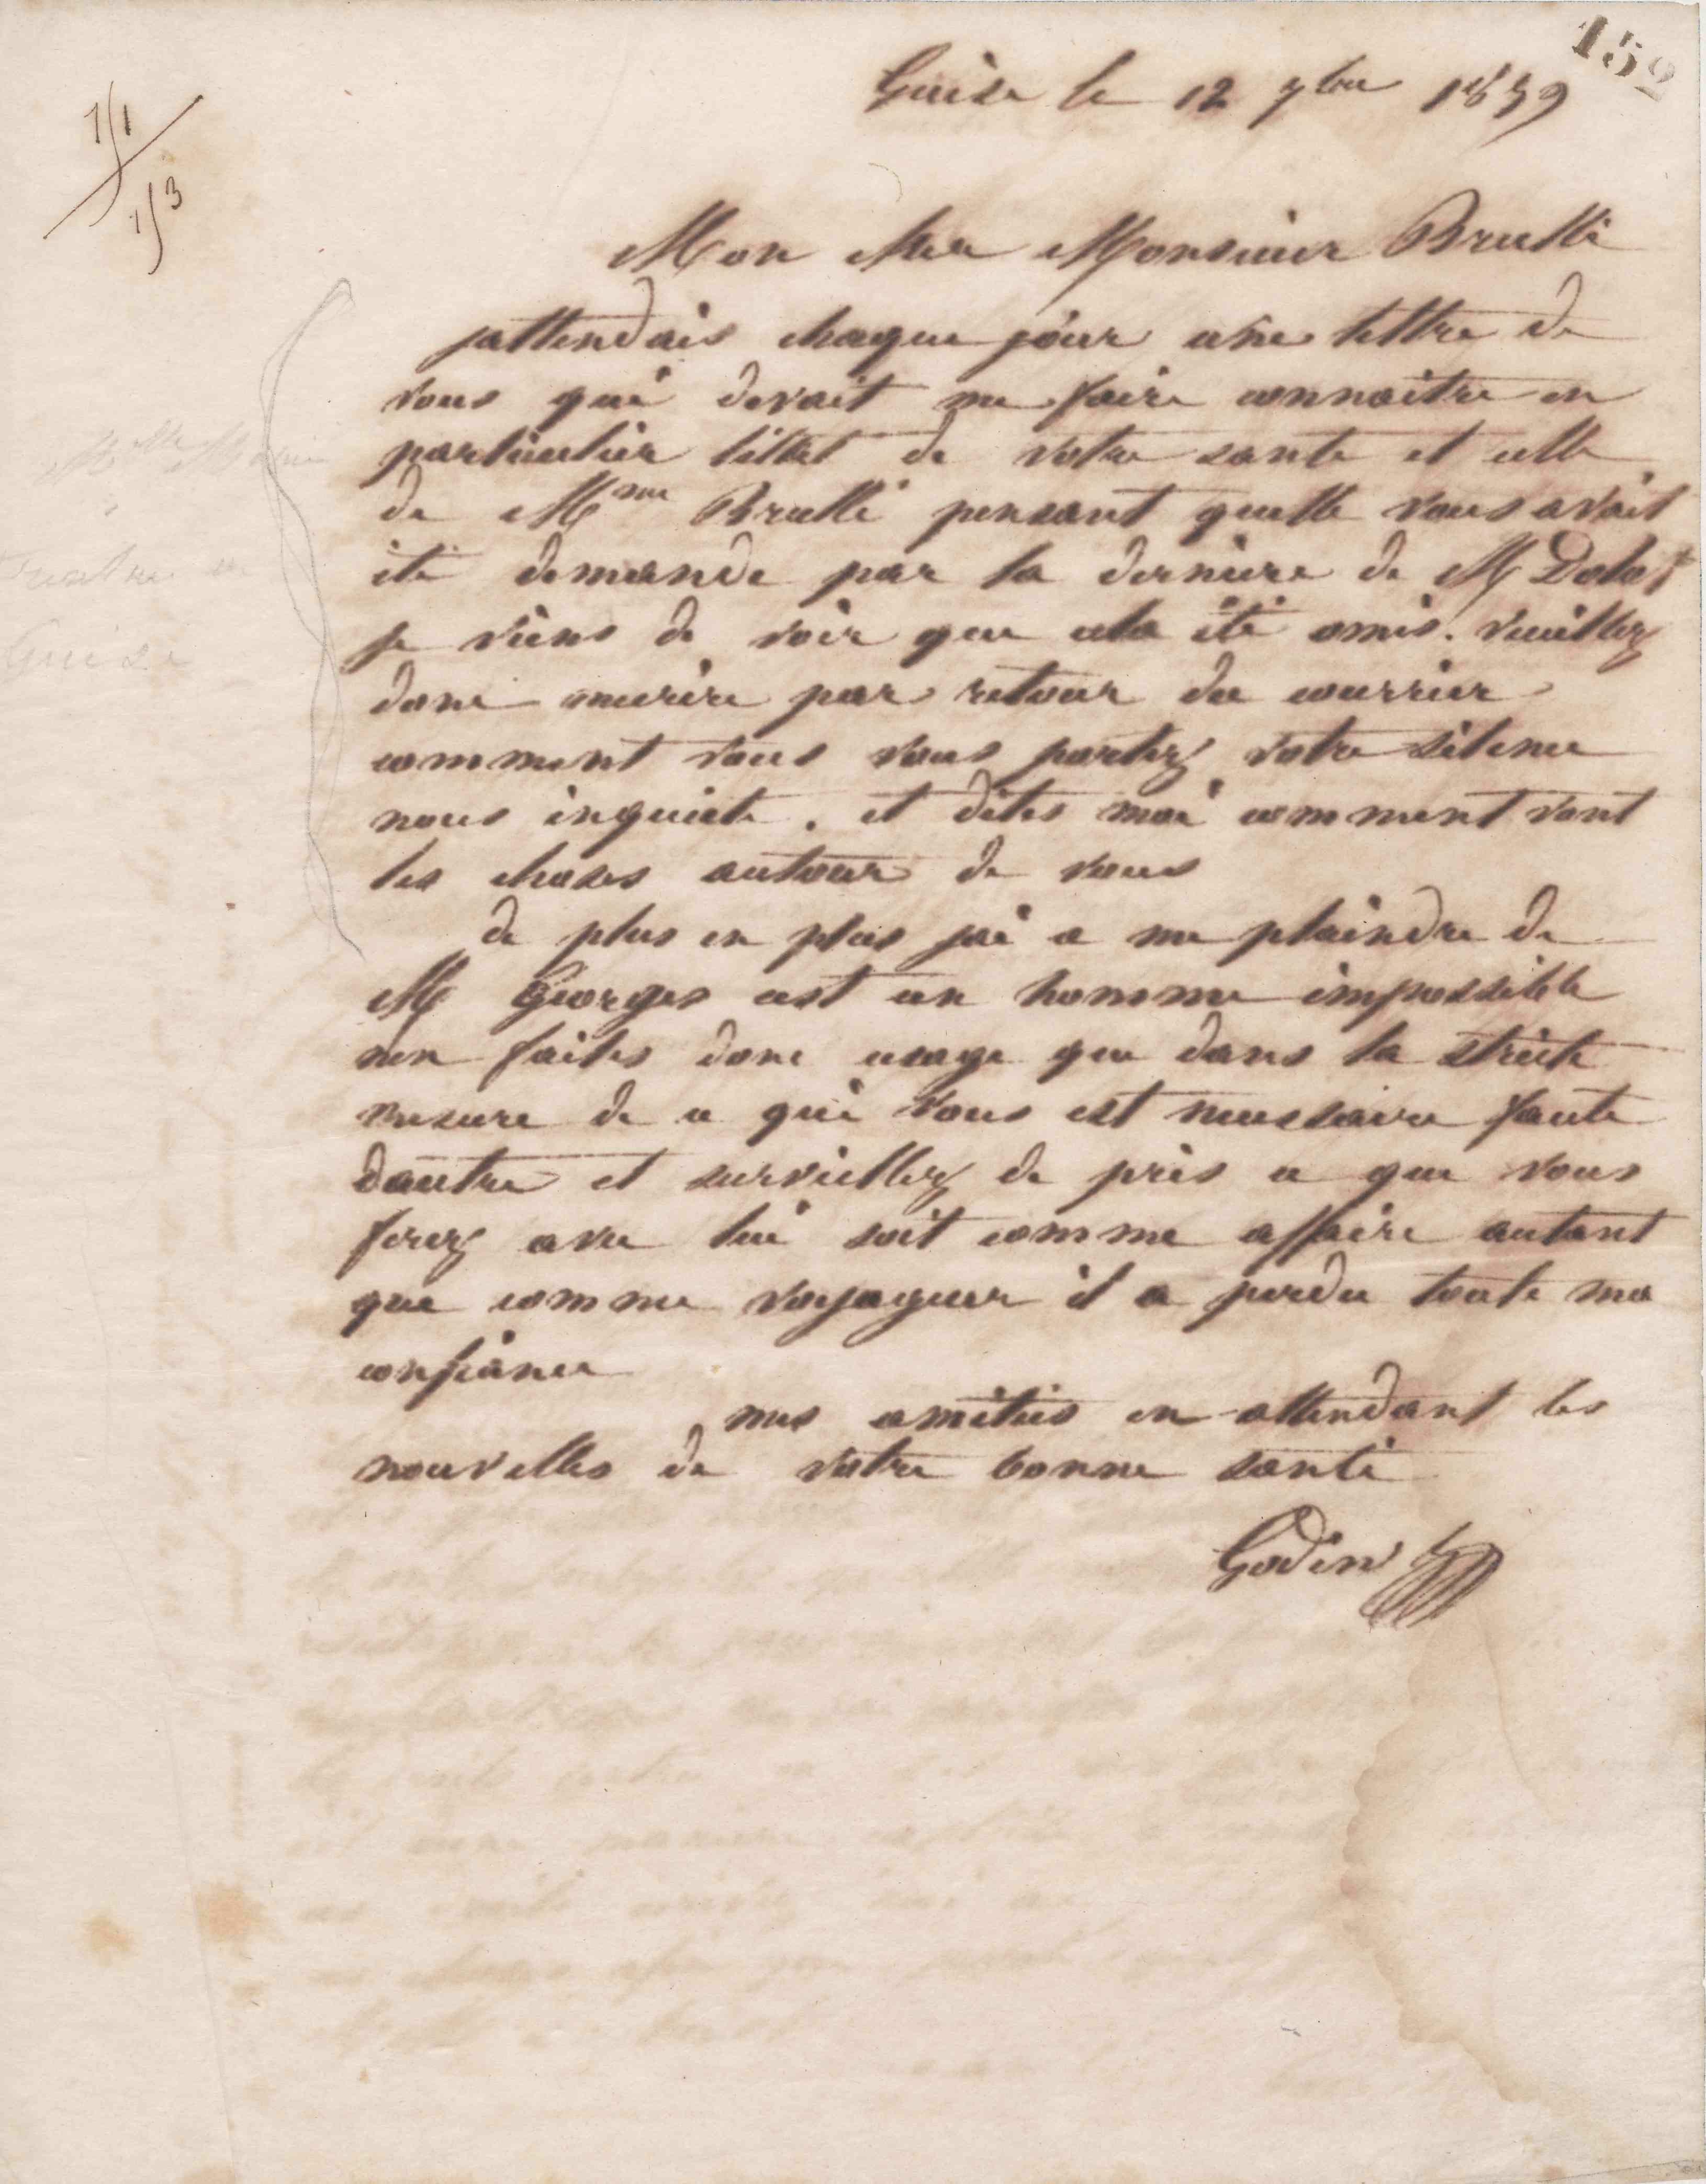 152
Guise le 12 7bre 1859
Mon cher Monsieur Brullé
jattendais chaque jour une lettre de
vous qui devait me faire connaitre en
particulier létat de votre santé et celle
de Mme Brullé pensant quelle vous avait
été demandé par la derniere de M
je viens de voir que cela été omis. veuillez
donc mecrire par retour du courrier
comment vous vous portez votre silence
nous inquiete. et dites moi comment vont
les choses autour de vous
de plus en plus jai a me plaindre de
M Georges cest un homme impossible
nen faites donc usage que dans la stricte
mesure de ce qui vous est necessaire faute
dautre et surveillez de près ce que vous
ferez avec lui soit comme affaire autant
que comme voyageur il a perdu toute ma
confiance
mes amitiés en attendant les
nouvelles de votre bonne santé
Godin
Guise